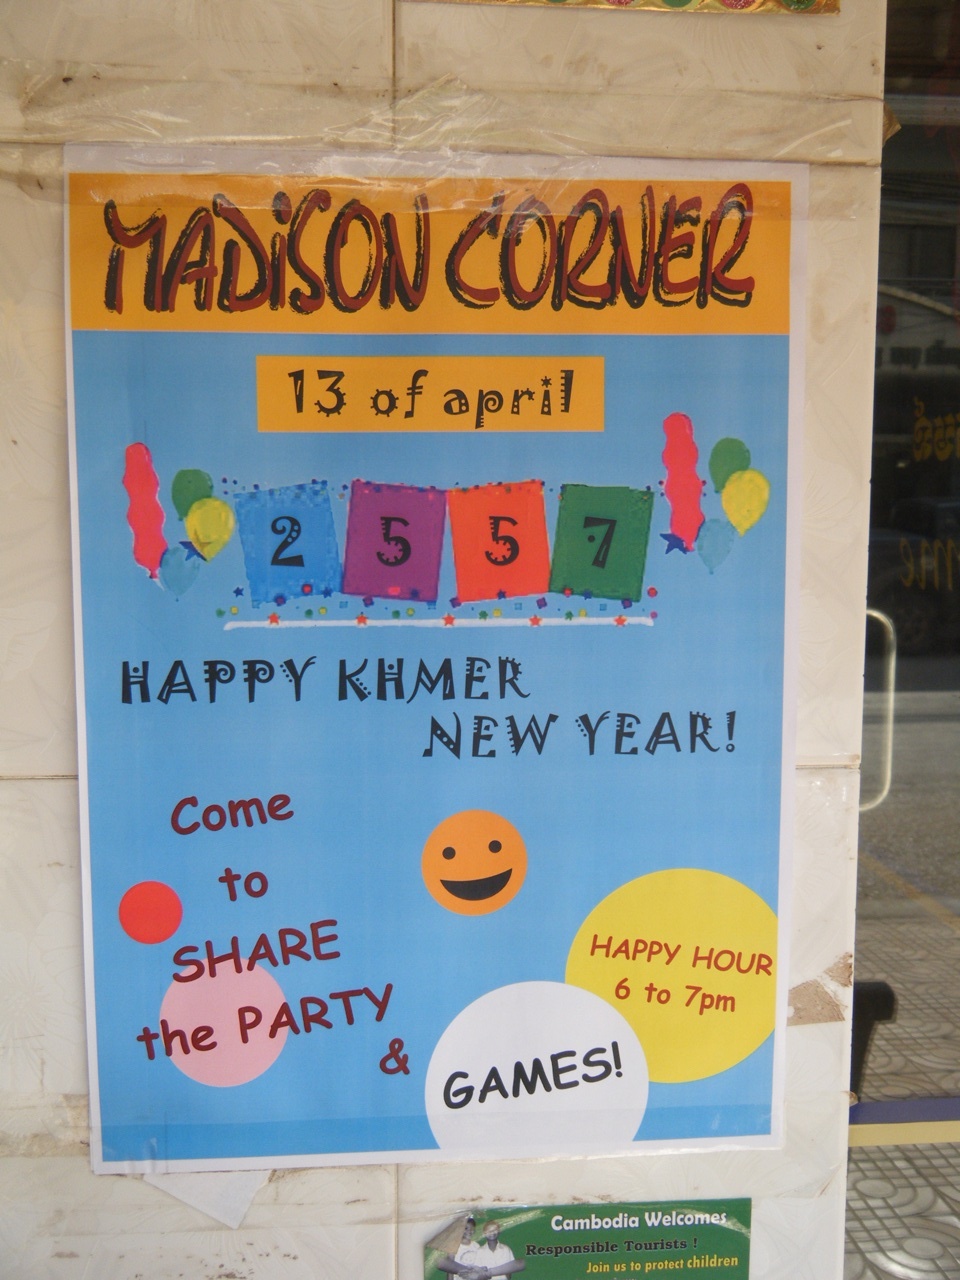 MADiSON CORNER
13 of april
2557
HAPPY KHMER
NEW YEAR!
Come
to
SHARE
the PARTY
&
GAMES!
HAPPY HOUR
6 to 7pm
Cambodia Welcomes
Responsible Tourists !
Join us to protect children